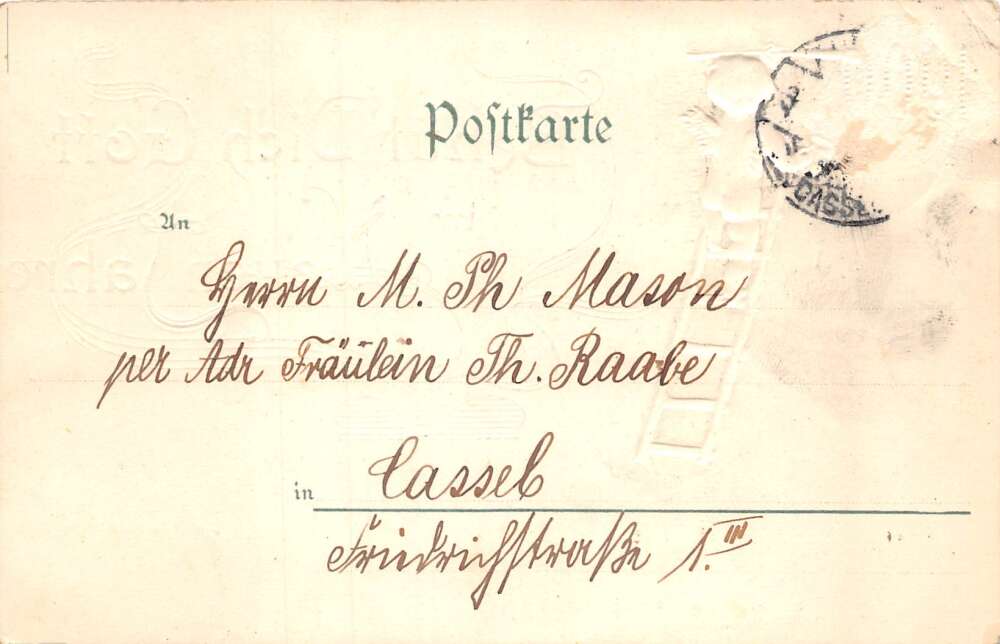 Postkarte
CASSEL
An
Herrn M. Ph Mason
per Adr Fräulein Th. Raabe
in Cassel
Friedrichstraße 1. III